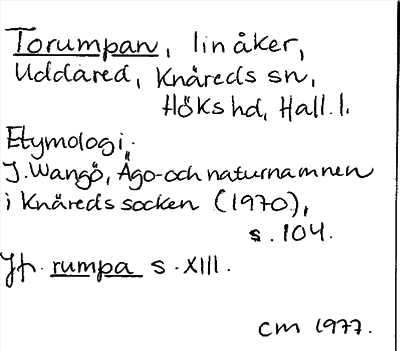 Torumpan, linåker,
Uddared, Knäreds sn,
Höks hd, Hall. l.
Etymologi.
J. Wangö, Ägo- och naturnamnen
i Knäreds socken (1970),
s. 104.
Jfr. rumpa s. XIII.
cm 1977.